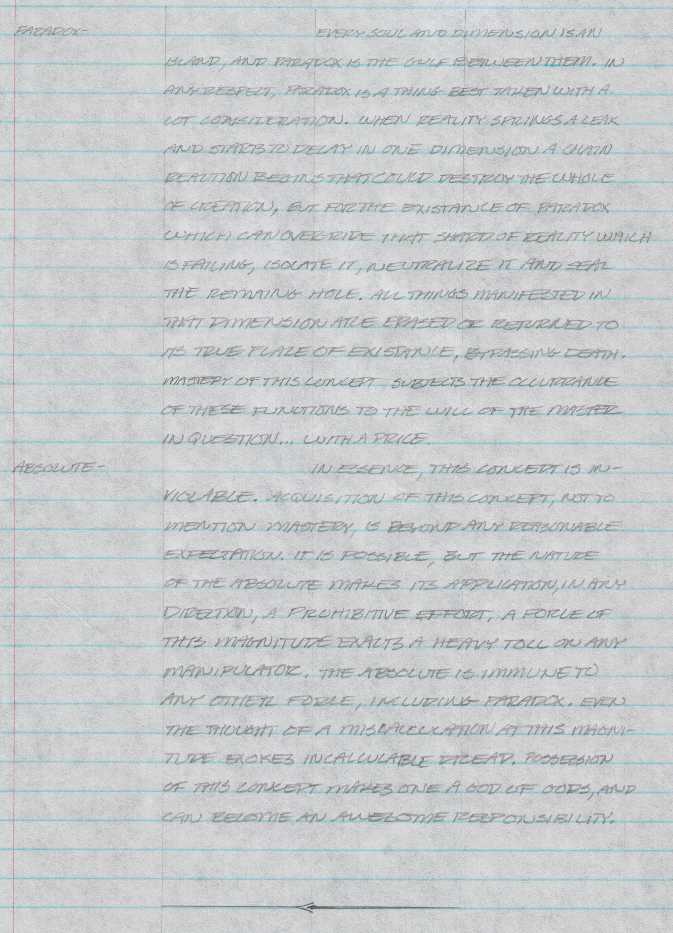 PARADOX- EVERY SOUL AND DIMENSION IS AN
ISLAND, AND PARADOX IS THE GULF BETWEEN THEM. IN
ANY RESPECT, PARADOX IS A THING BEST TAKEN WITH A
LOT CONSIDERATION. WHEN REALITY SPRINGS A LEAK
AND STARTS TO DECAY IN ONE DIMENSION A CHAIN
REACTION BEGINS THAT COULD DESTROY THE WHOLE
OF CREATION, BUT FOR THE EXISTANCE OF PARADOX
WHICH CAN OVERRIDE THAT SHARD OF REALITY WHICH
IS FAILING, ISOLATE IT, NEUTRALIZE IT AND SEAL
THE REMAING HOLE. ALL THINGS MANIFESTED IN
THAT DIMENSION ARE ERASED OR RETURNED TO
ITS TRUE PLACE OF EXISTANCE, BYPASSING DEATH.
MASTERY OF THIS CONCEPT SUBJECTS THE OCCURRANCE
OF THESE FUNCTIONS TO THE WILL OF THE MASTER
IN QUESTION... WITH A PRICE
ABSOLUTE- IN ESSENCE, THIS CONCEPT IS IN-
VIOLABLE. ACQUISITION OF THIS CONCEPT, NOT TO
MENTION MASTERY, IS BEYOND ANY REASONABLE
EXPECTATION. IT IS POSSIBLE, BUT THE NATURE
OF THE ABSOLUTE MAKES ITS APPLICATION, IN ANY
DIRECTION, A PROHIBITIVE EFFORT. A FORCE OF
THIS MAGNITUDE EXACTS A HEAVY TOLL ON ANY
MANIPULATOR. THE ABSOLUTE IS IMMUNE TO
ANY OTHER FORCE, INCLUDING PARADOX. EVEN
THE THOUGHT OF A MISCALCULATION AT THIS MAGNI-
TUDE EVOKES INCALCULABLE DREAD. POSSESSION
OF THIS CONCEPT MAKES ONE A GOD OF GODS, AND
CAN BECOME AN AWESOME RESPONSIBILITY.